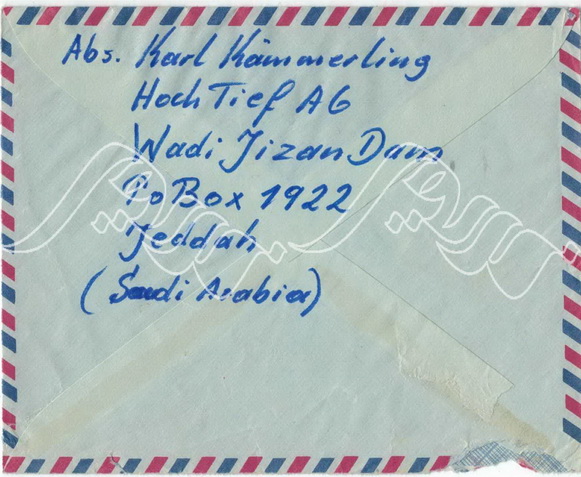 Abs. Karl Kämmerling
Hoch Tief AG
Wadi Jizan Dam
Po Box 1922
Jeddah
(Saudi Arabia)